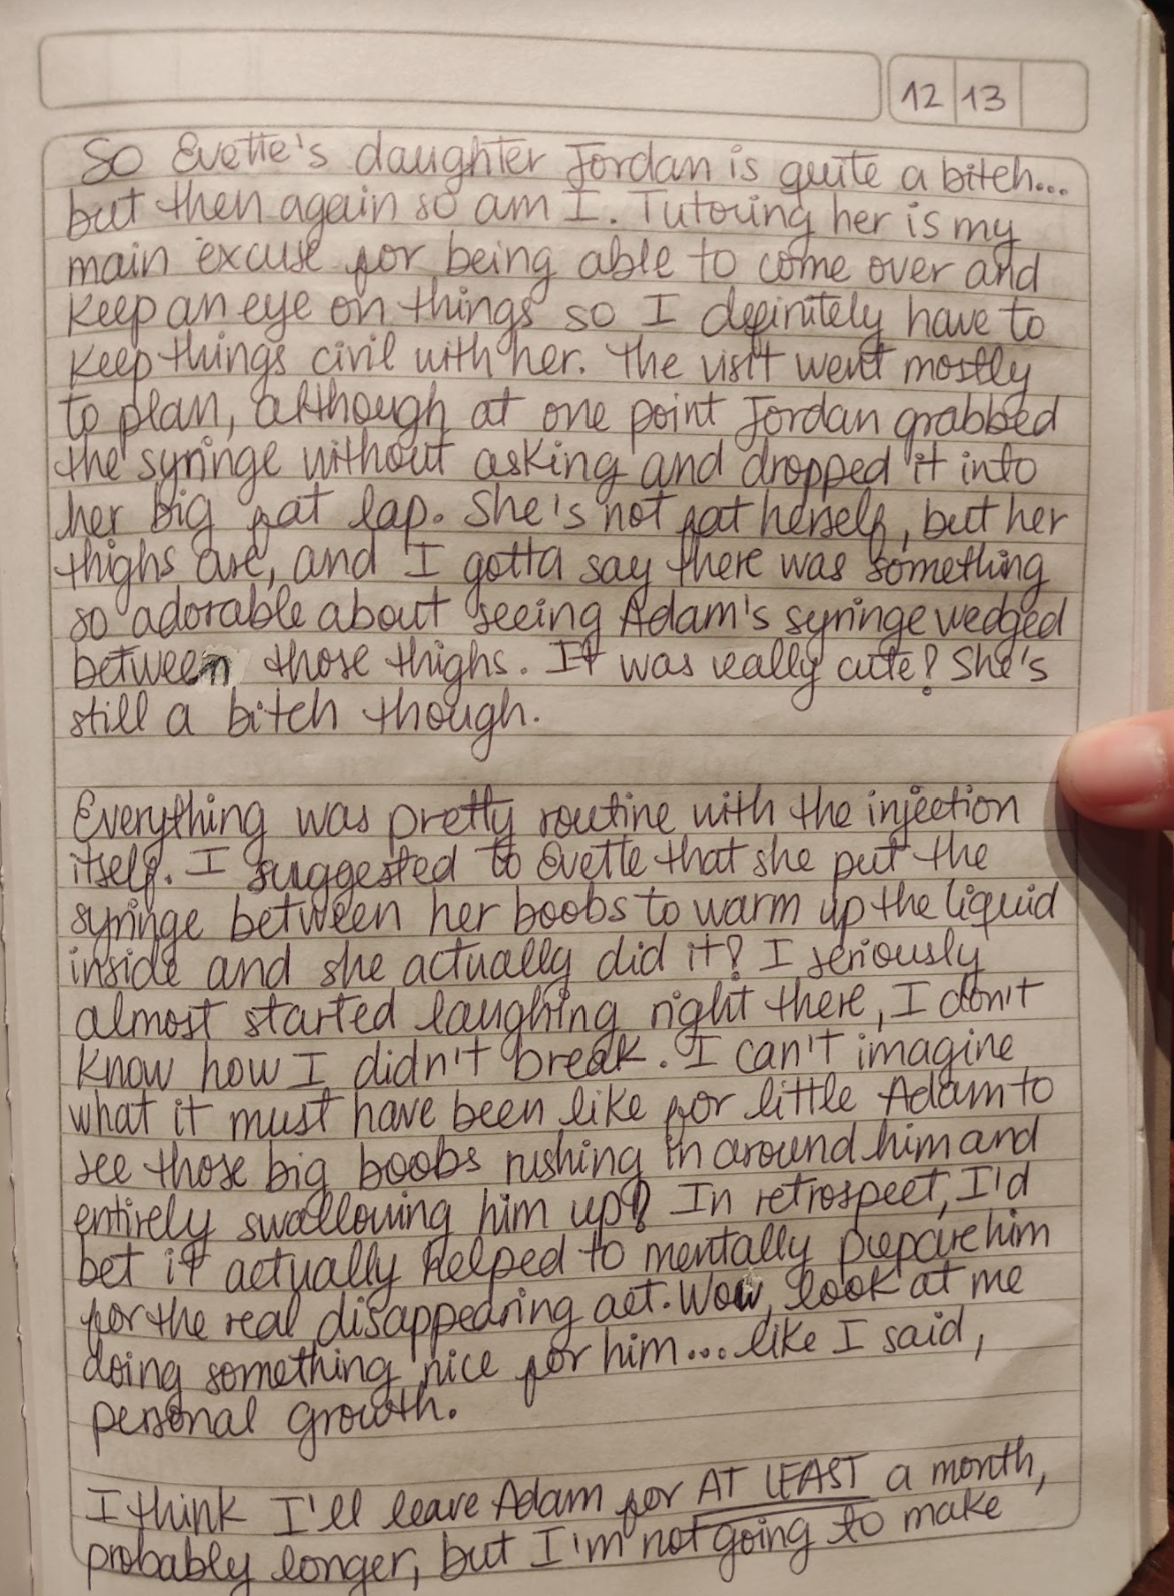 12 13
So Evette's daughter Jordan is quite a bitch...
but then again so am I. Tutoring her is my
main excuse for being able to come over and
keep an eye on things so I definitely have to
keep things civil with her. The visit went mostly
to plan, although at one point Jordan grabbed
the syringe without asking and dropped it into
her big fat lap. She's not fat herself, but her
thighs are, and I gotta say there was something
so adorable about seeing Adam's syringe wedged
between those thighs. It was really cute! She's
still a bitch though.
Everything was pretty routine with the injection
itself. I suggested to Evette that she put the
syringe between her boobs to warm up the liquid
inside and she actually did it! I seriously
almost started laughing right there, I don't
know how I didn't break. I can't imagine
what it must have been like for little Adam to
see those big boobs rushing in around him and
entirely swallowing him up! In retrospect, I'd
bet it actually helped to mentally prepare him
for the real disappearing act. Wow, look at me
doing something nice for him... like I said,
personal growth.
I think I'll leave Adam for AT LEAST a month,
probably longer, but I'm not going to make